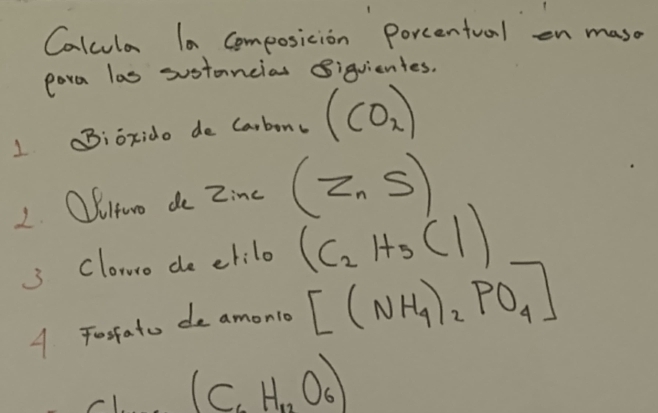 Calcula la composición porcentual en masa
para las sustancias siguientes.
1 Bióxido de Carbono (CO₂)
2. Sulfuro de Zinc (Zn S)
3 Cloruro de etilo (C₂ H₅ Cl)
4 Fosfato de amonio [(NH₄)₂ PO₄]
(C₆ H₁₂ O₆)